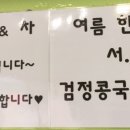 & 사
니다~
합니다♥
여름 한
서.
검정콩국